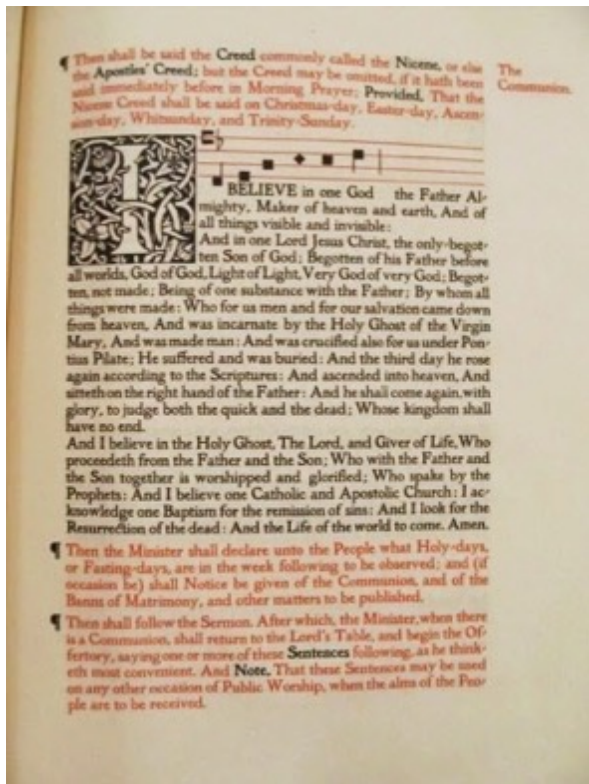 ¶ Then shall be said the Creed commonly called the Nicene, or else
the Apostles' Creed; but the Creed may be omitted, if it hath been
said immediately before in Morning Prayer; Provided, That the
Nicene Creed shall be said on Christmas-day, Easter-day, Ascen-
sion-day, Whitsunday, and Trinity-Sunday.
The
Communion.
I BELIEVE in one God the Father Al-
mighty, Maker of heaven and earth, And of
all things visible and invisible:
And in one Lord Jesus Christ, the only-begot-
ten Son of God; Begotten of his Father before
all worlds, God of God, Light of Light, Very God of very God; Begot-
ten, not made; Being of one substance with the Father; By whom all
things were made: Who for us men and for our salvation came down
from heaven, And was incarnate by the Holy Ghost of the Virgin
Mary, And was made man: And was crucified also for us under Pon-
tius Pilate; He suffered and was buried: And the third day he rose
again according to the Scriptures: And ascended into heaven, And
sitteth on the right hand of the Father: And he shall come again, with
glory, to judge both the quick and the dead; Whose kingdom shall
have no end.
And I believe in the Holy Ghost, The Lord, and Giver of Life, Who
proceedeth from the Father and the Son; Who with the Father and
the Son together is worshipped and glorified; Who spake by the
Prophets: And I believe one Catholic and Apostolic Church: I ac-
knowledge one Baptism for the remission of sins: And I look for the
Resurrection of the dead: And the Life of the world to come. Amen.
¶ Then the Minister shall declare unto the People what Holy-days,
or Fasting-days, are in the week following to be observed; and (if
occasion be) shall Notice be given of the Communion, and of the
Banns of Matrimony, and other matters to be published.
¶ Then shall follow the Sermon. After which, the Minister, when there
is a Communion, shall return to the Lord's Table, and begin the Of-
fertory, saying one or more of these Sentences following, as he think-
eth most convenient. And Note, That these Sentences may be used
on any other occasion of Public Worship, when the alms of the Peo-
ple are to be received.